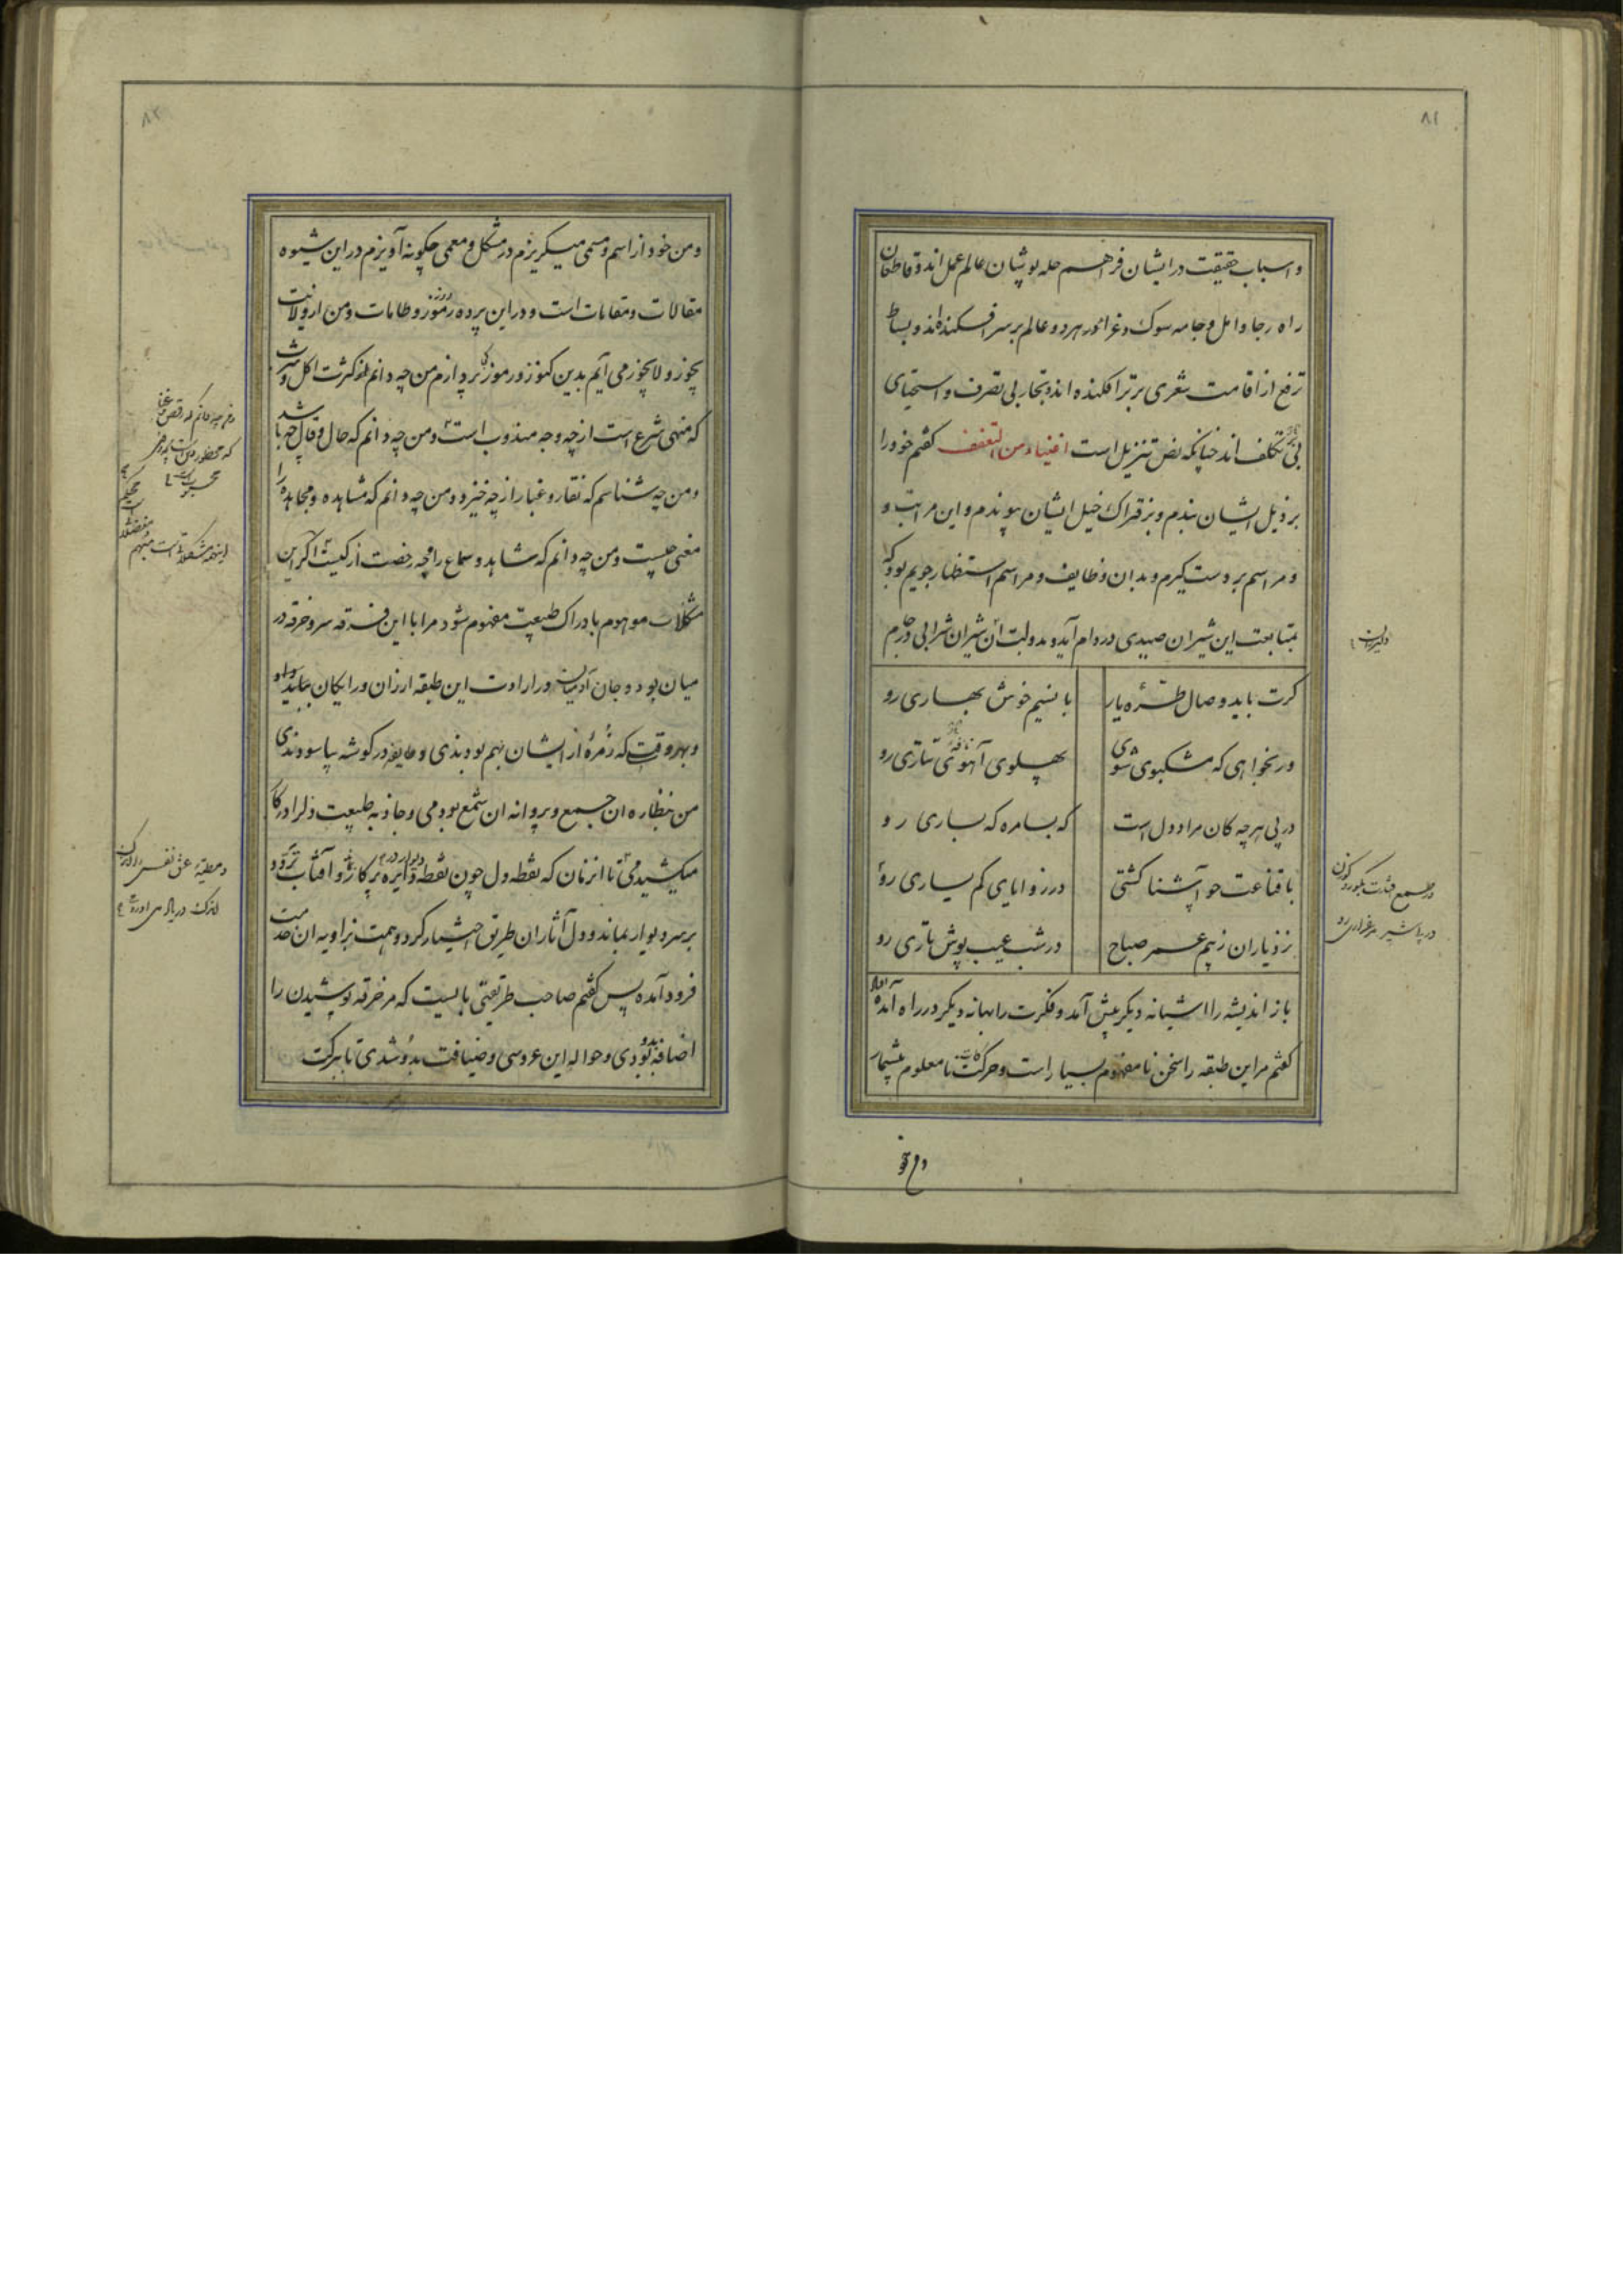 ۸۱
و اسباب حقیقت در ایشان فراهم حله پوشان عالم عمل اند و قاطعان
راه رجا و امل و جامه سوک و عزا در هر دو عالم بر سر افکنده اند و بساط
ترفع از اقامت شعری برتر افکنده اند و تجار بی تصرف و اسخیای
بی تکلف اند چنانکه نص تنزیل است اغنیاء من التعفف گفتم خود را
بر ذیل ایشان بندم و بر فتراک خیل ایشان پیوندم و این مراتب و
و مراسم بر دست گیرم و بدان وظایف و مراسم استظهار جویم بود که
بمتابعت این شیران صیدی در دام آید و بدولت آن شیران شرابی در جام
کرت باید وصال طره یار
با نسیم خوش بهاری رو
ور بخواهی که مشکبوی شوی
پهلوی آهوی تتاری رو
در پی هرچه کان مراد دل است
که بسامره که بساری رو
با قناعت چو آشنا کشتی
در زوایای کم یساری رو
نزد یاران ز بیم عمر صباح
در شب عیب پوش تاری رو
باز اندیشه را آشیانه دیگر پیش آمد و فکرت را بهانه دیگر در راه آمد
گفتم مر این طبقه را سخن نامفهوم بسیار است و حرکت نامعلوم بیشمار
و من خود
۸۲
و من خود از اسم و مسمی میگریزم در مشکل و معمی چگونه آویزم در این شیوه
مقالات و مقامات است و در این پرده رموز و طامات و من از ولایت
یجوز و لایجوز می آیم بدین کنوز و رموز کی پردازم من چه دانم که کثرت اکل و شرب
که منهی شرع است از چه وجه مندوب است و من چه دانم که حال و قال چه باشد
و من چه شناسم که نقار و غبار از چه خیزد و من چه دانم که مشاهده و مجاهده را
معنی چیست و من چه دانم که شاهد و سماع را چه رخصت از کیست اگر این
مشکلات موهوم با دراک طبیعت مفهوم شود مرا با این فرقه سر و خرقه در
میان بود و جان آدمیان در ارادت این طبقه ارزان و رایکان بیاید داد
و بهر وقت که زمرهٔ از ایشان بهم بودندی و طایفه در گوشه بیاسودندی
من بنظاره ان جمع و پروانه ان شمع بودمی و جاذبه طبیعت دل را در کار
میکشیدمی تا انزمان که نقطه دل چون نقطه دایره پرگار شد و آفتاب تردد
بر سر دیوار بماند و دل آثار ان طریق اختیار کرد و همت بزاویه ان خدمت
فرود آمده پس گفتم صاحب طریقتی بایست که مر خرقه پوشیدن را
اضافه بدو بودی و حواله این عروسی و ضیافت بدو شدی تا ببرکت